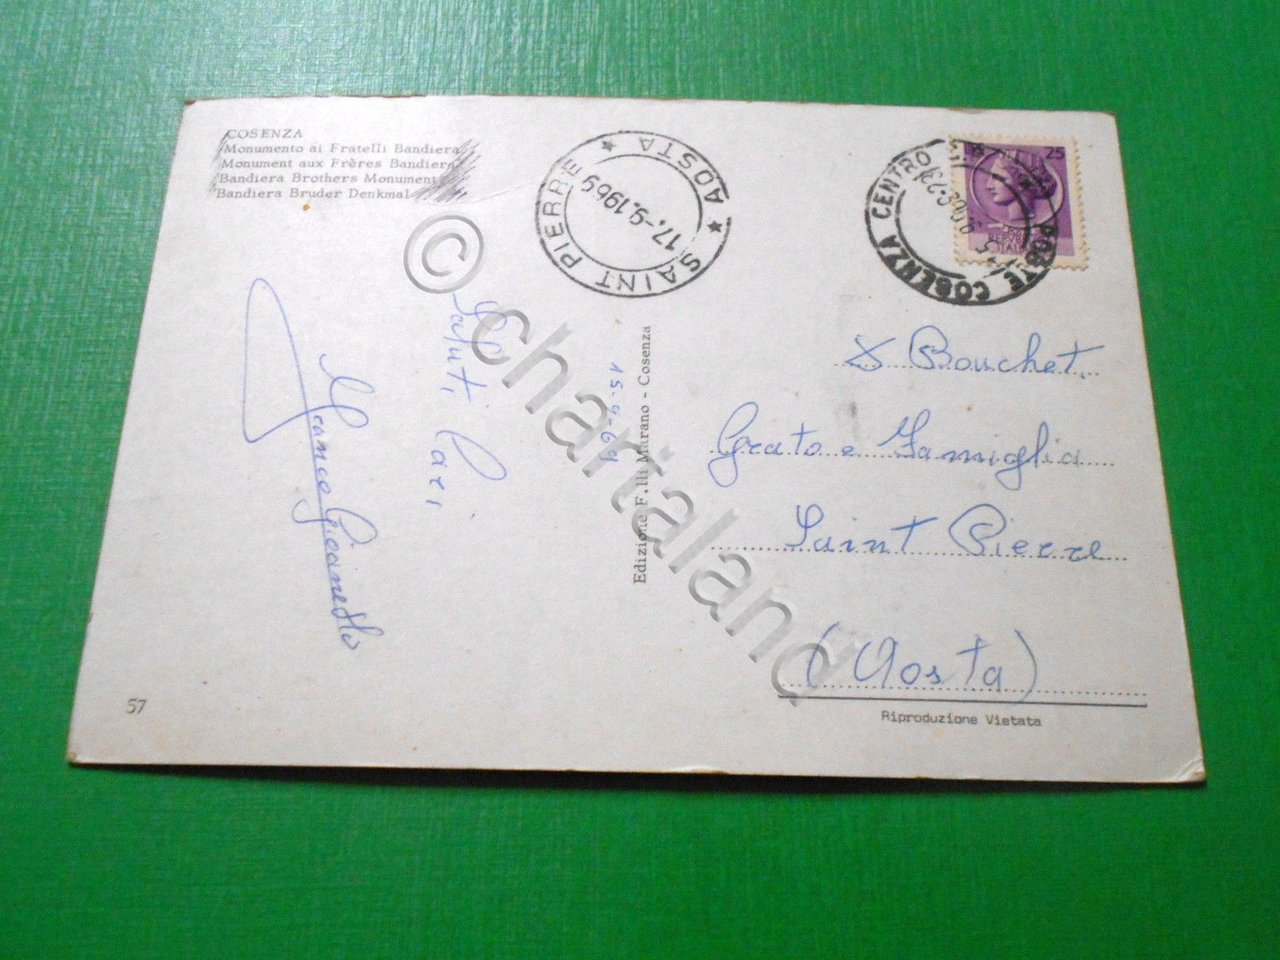 COSENZA
Monumento ai Fratelli Bandiera
Monument aux Frères Bandiera
Bandiera Brothers Monument
Bandiera Bruder Denkmal
SAINT PIERRE
* AOSTA *
17.-9.1969
POSTE COSENZA CENTRO
25
Saluti Cari
15-9-69
Edizione F.lli Marano - Cosenza
Bouchet
Grato e Famiglia
Saint Pierre
(Aosta)
Riproduzione Vietata
57
© chartaland